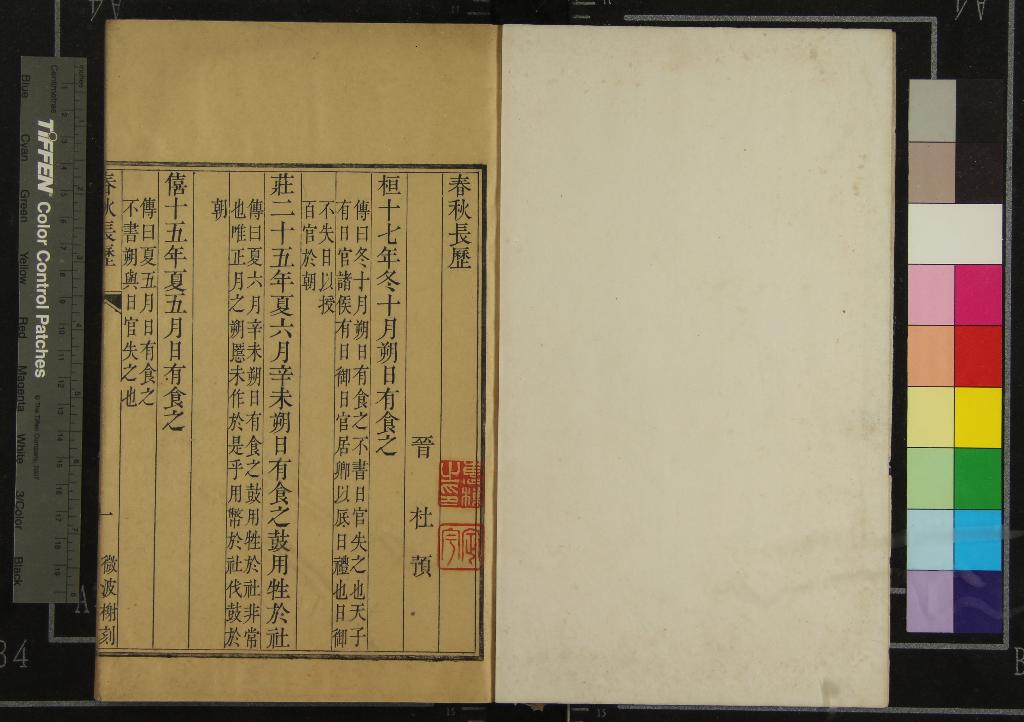 春秋長歷
晉 杜預
桓十七年冬十月朔日有食之
傳曰冬十月朔日有食之不書日官失之也天子
有日官諸侯有日御日官居卿以厎日禮也日御
不失日以授
百官於朝
莊二十五年夏六月辛未朔日有食之鼓用牲於社
傳曰夏六月辛未朔日有食之鼓用牲於社非常
也唯正月之朔慝未作於是乎用幣於社伐鼓於
朝
僖十五年夏五月日有食之
傳曰夏五月日有食之
不書朔與日官失之也
春秋長歷
一
微波榭刻
TIFFEN Color Control Patches
© The Tiffen Company, 2007
Centimetres
Inches
Blue
Cyan
Green
Yellow
Red
Magenta
White
3/Color
Black